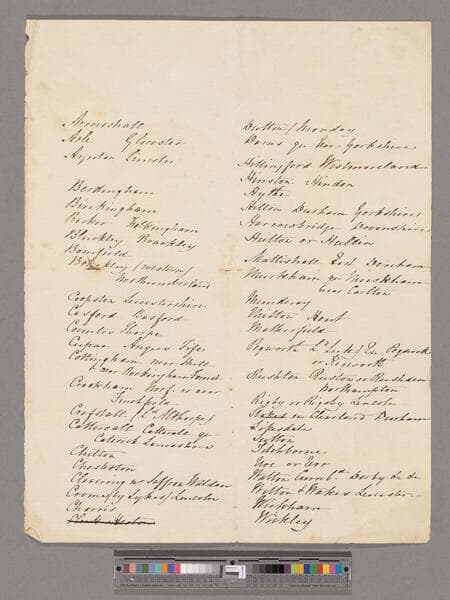 Arminshall
Asle Gloucester
Ayrton Lincoln
Berdingham
Birckingham
Becker Folkingham
Blackley Brackley
Bonnfield
Northumberland
Cropston Leicestershire
Casford Basford
Counter Thorpe
Cupar Angus Fife
Cottingham near Hull
or near Rockingham Forest
Crookham Norf. or near
Craftall (Ld. Althorpe)
Cattersall Catterall qu
Catterick Lancashire
Chilton
Chesterton
Clavering nr Saffron Walden
Croome (by Sykes) Lincoln
Charris
Dutton / Monday
Darns qu Nun Yorkshire
Hollingford Westmoreland
Hinston Hindon
Hythe
Hilton Durham Yorkshire
Harrowbridge Devonshire
Hutton or Huldin
Mattishall East Dereham
Murkham qu Muskham
near Carlton
Mundray
Milton Kent
Matherfield
Pegworth
or Kegworth
Rushton Ruston or Rushden
Northampton
Rigby or Rigsby Lincoln
Stakes in Cleveland Durham
Lipsdale
Sutton
Titchborne
Walton Cumbd. Derby &c &c
Witton & Wakes Leicester
Wickham
Wickley